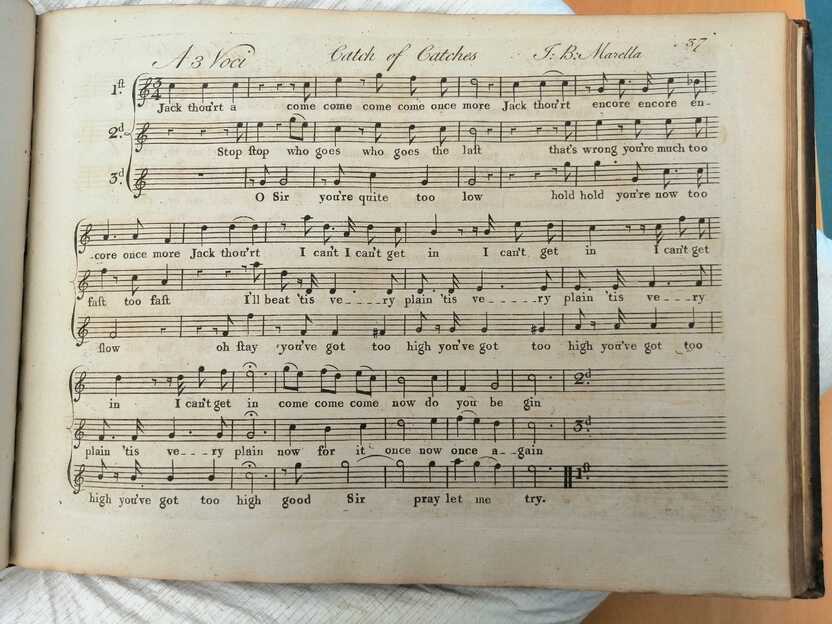 A 3 Voci Catch of Catches J: B: Marella 37
1.st
Jack thou'rt a come come come come once more Jack thou'rt encore encore en-
2.d
Stop stop who goes who goes the last that's wrong you're much too
3.d
O Sir you're quite too low hold hold you're now too
core once more Jack thou'rt I can't I can't get in I can't get in I can't get
fast too fast I'll beat 'tis ve----ry plain 'tis ve-----ry plain 'tis ve---ry
slow oh stay you've got too high you've got too high you've got too
in I can't get in come come come now do you be gin 2.d
plain 'tis ve---ry plain now for it once now once a--gain 3.d
high you've got too high good Sir pray let me try. 1.st